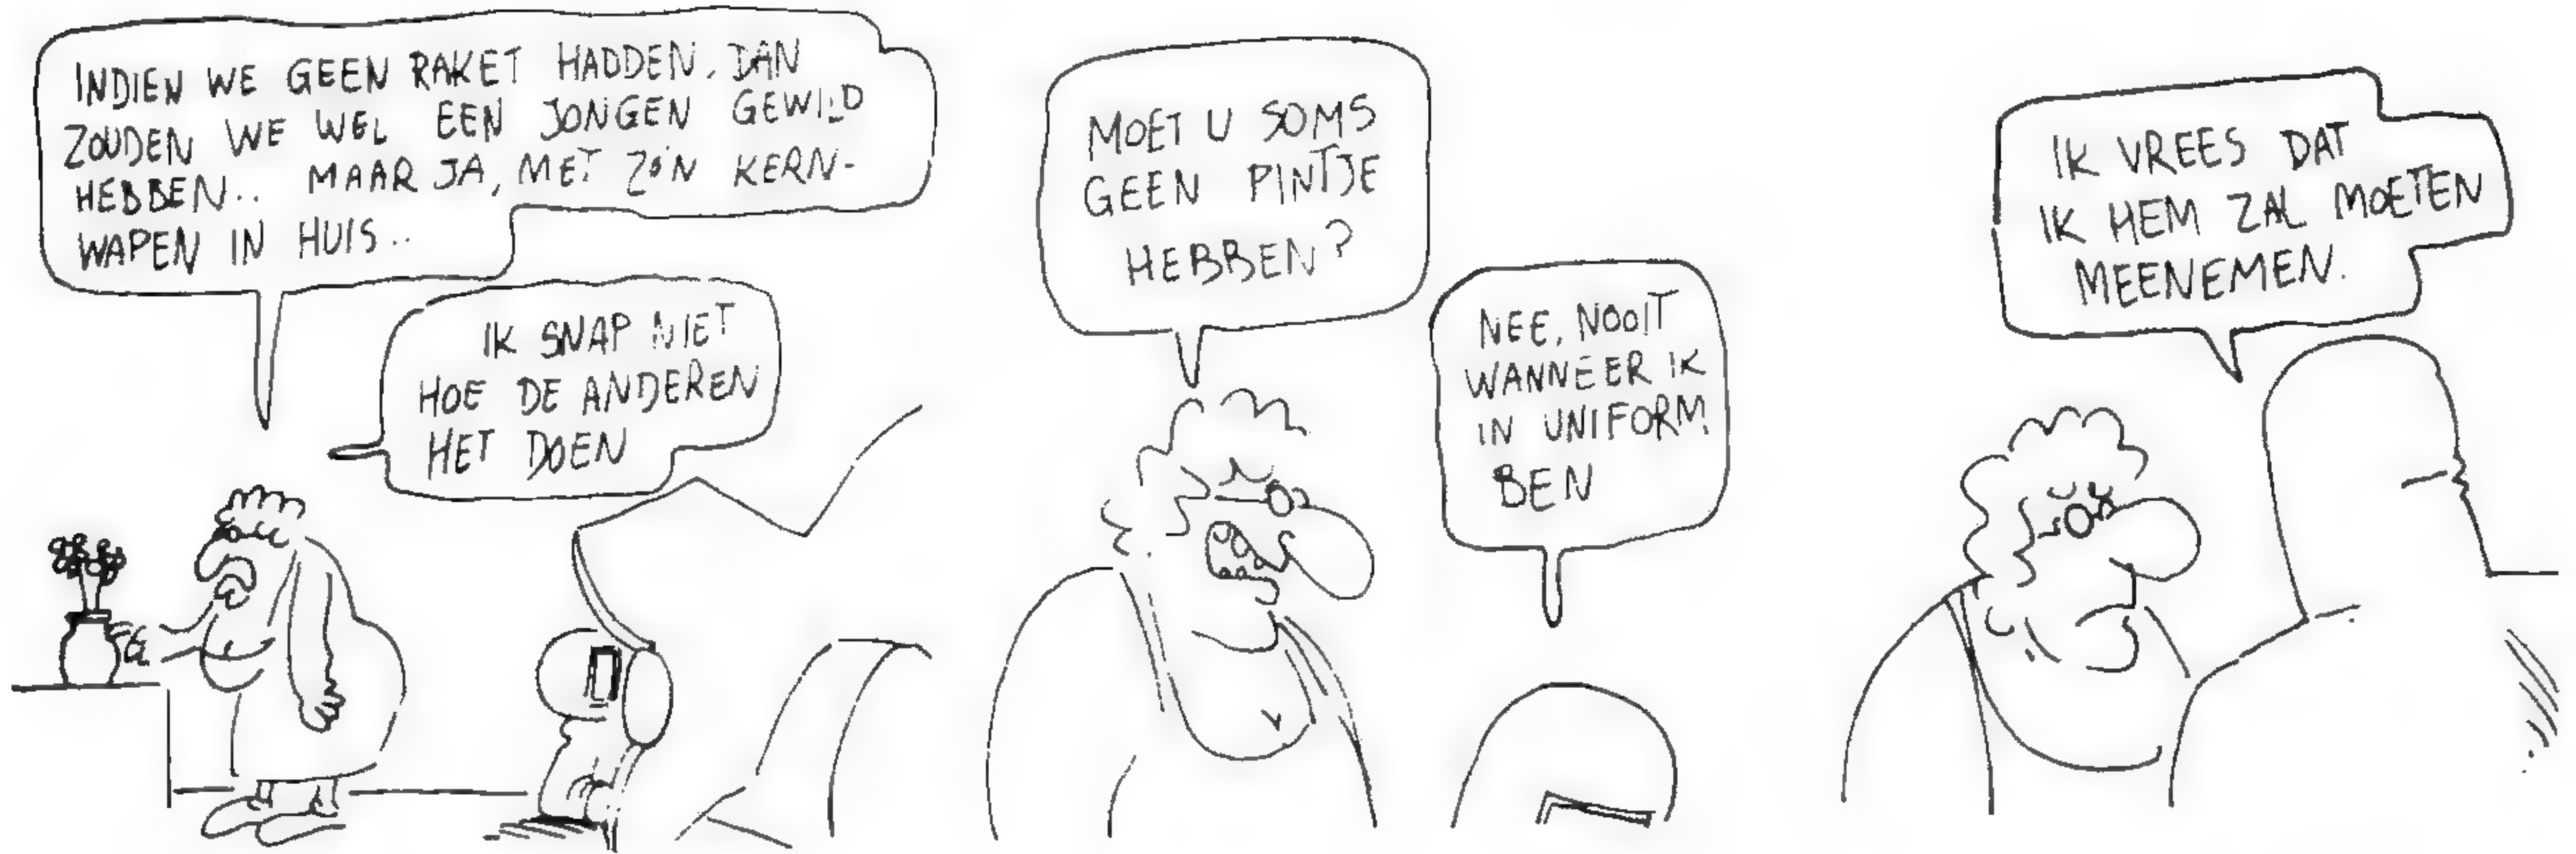 INDIEN WE GEEN RAKET HADDEN, DAN
ZOUDEN WE WEL EEN JONGEN GEWILD
HEBBEN.. MAAR JA, MET ZO'N KERN-
WAPEN IN HUIS..
IK SNAP NIET
HOE DE ANDEREN
HET DOEN
MOET U SOMS
GEEN PINTJE
HEBBEN?
NEE, NOOIT
WANNEER IK
IN UNIFORM
BEN
IK VREES DAT
IK HEM ZAL MOETEN
MEENEMEN.